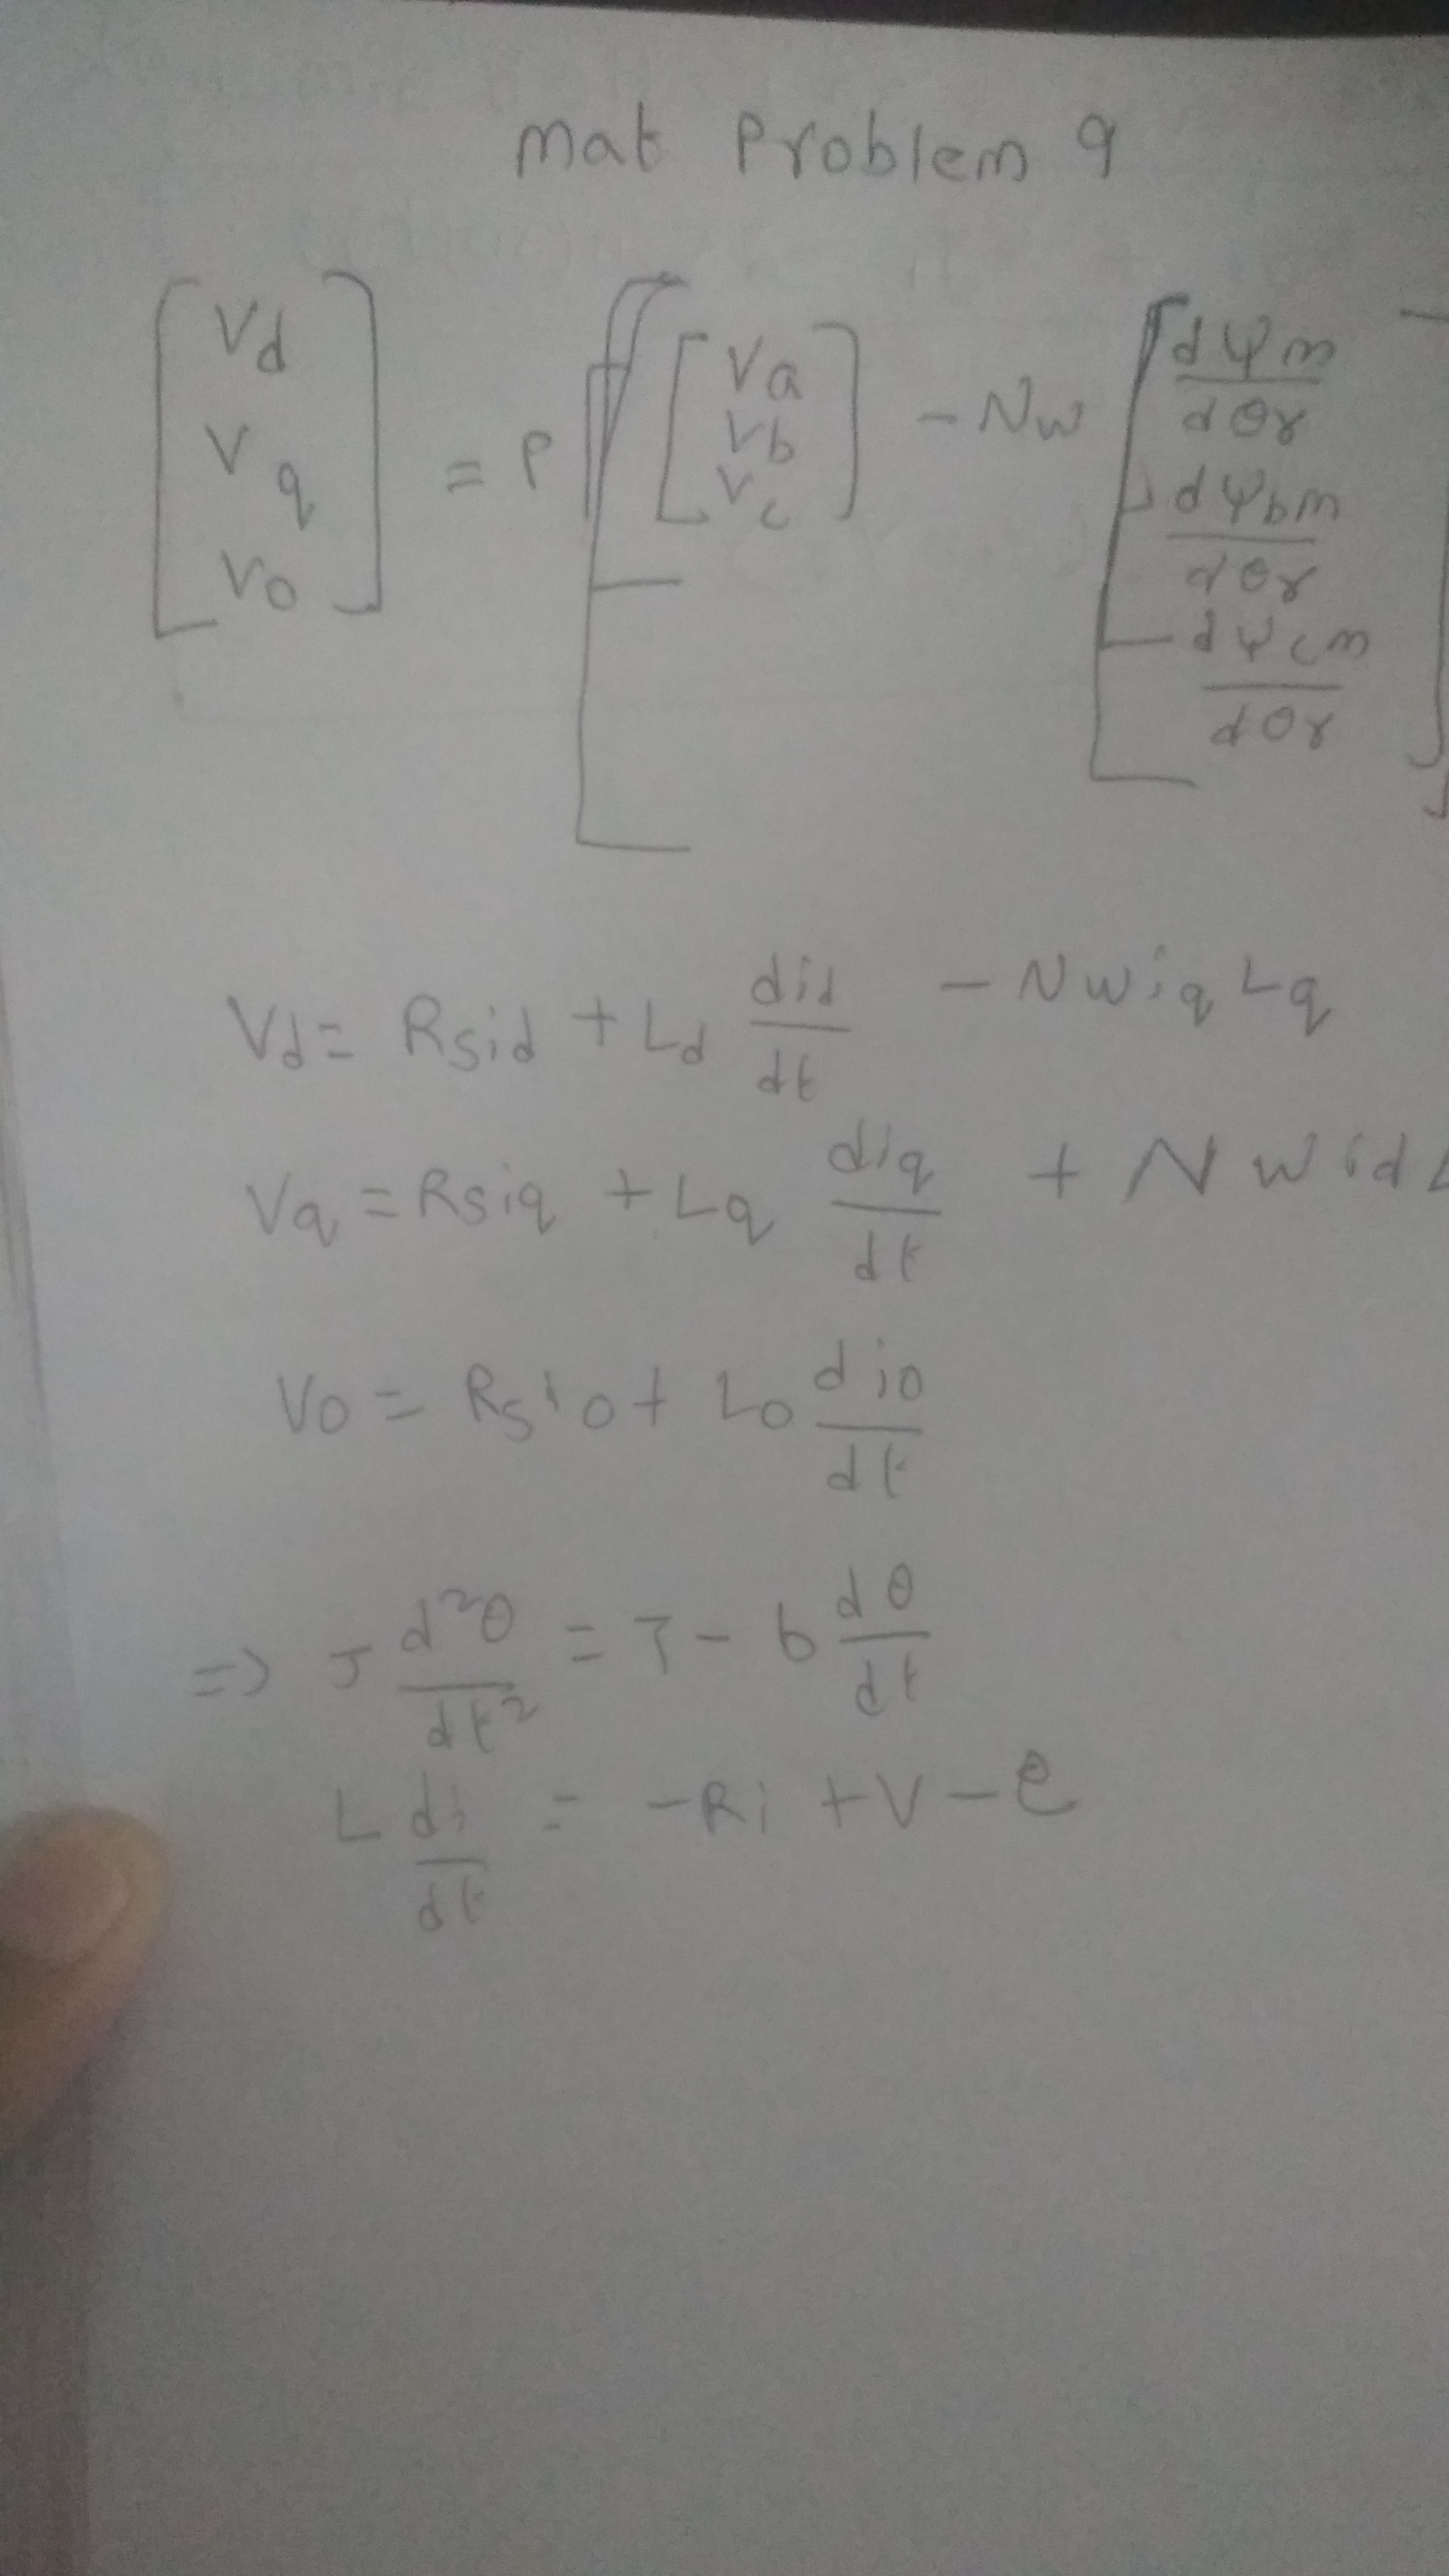 mat Problem 9
[Vd Vq Vo] = P [[Va Vb Vc] - Nw [dψm/dθr dψbm/dθr dψcm/dθr]]
Vd = Rsid + Ld did/dt - Nwiq Lq
Vq = Rsiq + Lq diq/dt + Nwid
Vo = Rsio + Lo dio/dt
=> J d²θ/dt² = T - b dθ/dt
L di/dt = -Ri + V - e